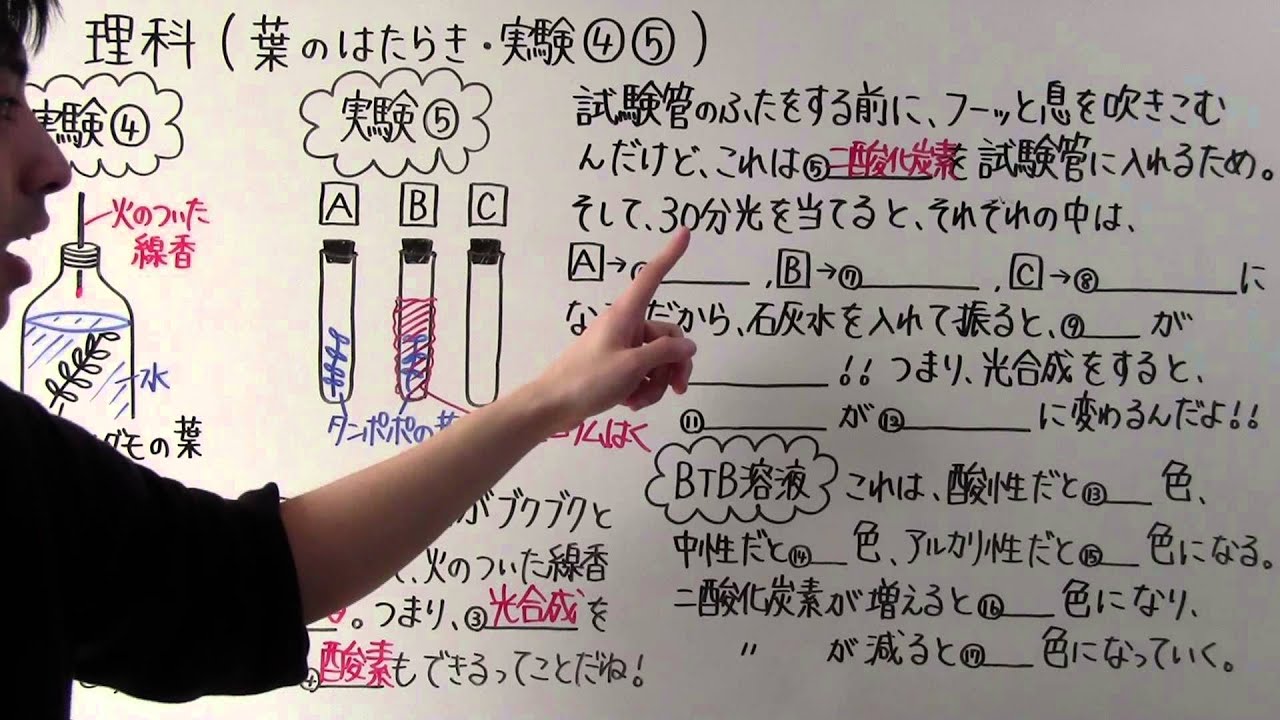 理科(葉のはたらき・実験④⑤)
実験④
火のついた
線香
水
モの葉
実験⑤
A B C
タンポポの
ムはく
がブクブクと
、火のついた線香
。つまり、③光合成を
酸素もできるってことだね!
試験管のふたをする前に、フーッと息を吹きこむ
んだけど、これは⑤二酸化炭素を試験管に入れるため。
そして、30分光を当てると、それぞれの中は、
A→ ,B→⑦ ,C→⑧ に
な だから、石灰水を入れて振ると、⑨ が
!! つまり、光合成をすると、
⑪ が⑫ に変わるんだよ!!
BTB溶液 これは、酸性だと⑬ 色、
中性だと⑭ 色、アルカリ性だと⑮ 色になる。
二酸化炭素が増えると⑯ 色になり、
〃 が減ると⑰ 色になっていく。